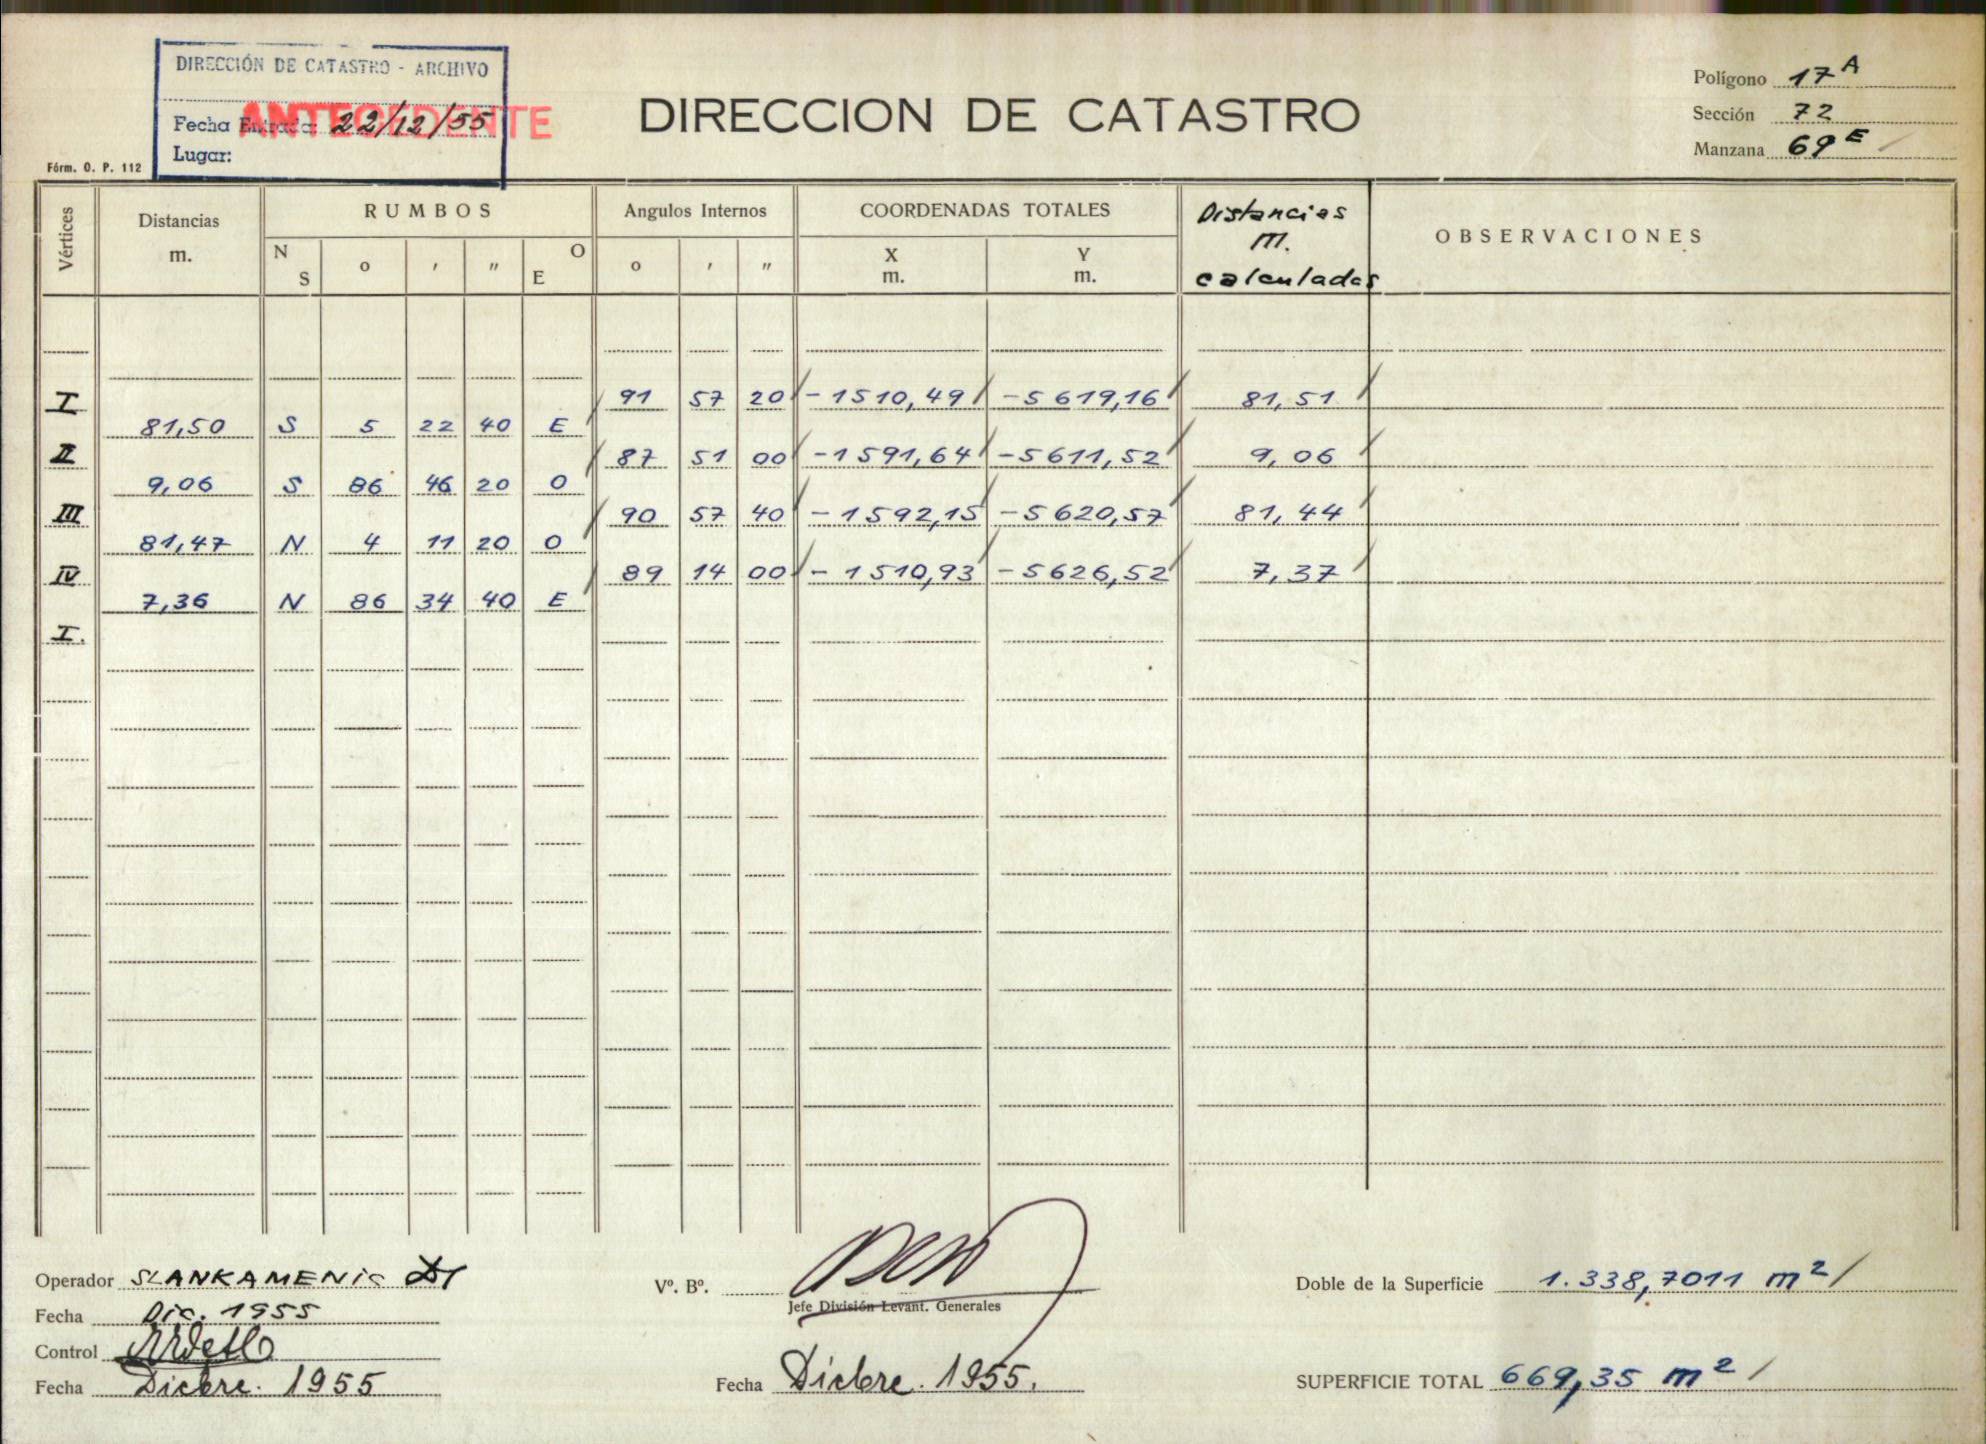 DIRECCIÓN DE CATASTRO - ARCHIVO
ANTECEDENTE
Fecha Entrada: 22/12/55
Lugar:
Fórm. O. P. 112
DIRECCION DE CATASTRO
Polígono 17 A
Sección 72
Manzana 69 E
Vértices Distancias m. RUMBOS N S o ' " O E Angulos Internos o ' " COORDENADAS TOTALES X m. Y m. Distancias m. calculadas OBSERVACIONES
I 91 57 20 -1510,49 -5619,16 81,51
81,50 S 5 22 40 E
II 87 51 00 -1591,64 -5611,52 9,06
9,06 S 86 46 20 O
III 90 57 40 -1592,15 -5620,57 81,44
81,47 N 4 11 20 O
IV 89 14 00 -1510,93 -5626,52 7,37
7,36 N 86 34 40 E
I.
Operador SLANKAMENIC
Fecha Dic. 1955
Control
Fecha Dicbre. 1955
Vº. Bº.
Jefe División Levant. Generales
Fecha Dicbre. 1955.
Doble de la Superficie 1.338,7011 m2
SUPERFICIE TOTAL 669,35 m2